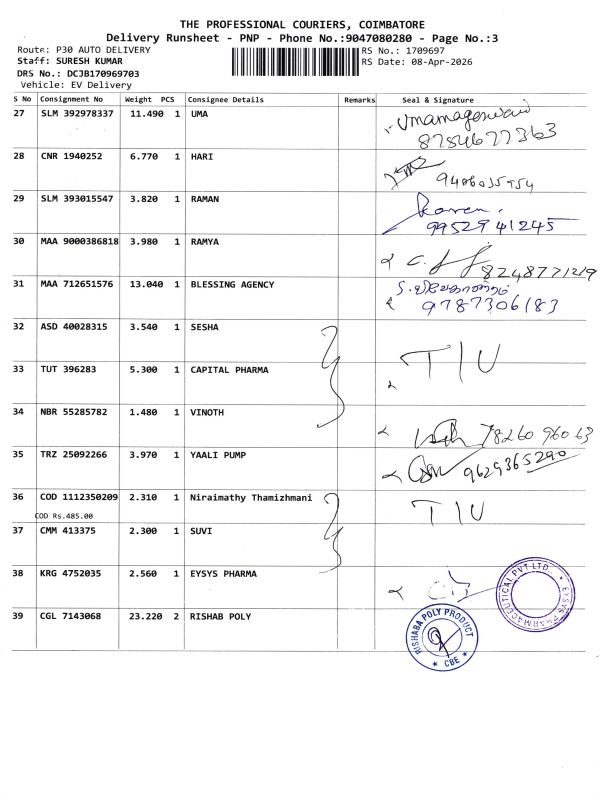 THE PROFESSIONAL COURIERS, COIMBATORE
Delivery Runsheet - PNP - Phone No.:9047080280 - Page No.:3
Route: P30 AUTO DELIVERY
RS No.: 1709697
Staff: SURESH KUMAR
RS Date: 08-Apr-2026
DRS No.: DCJB170969703
Vehicle: EV Delivery
S No Consignment No Weight PCS Consignee Details Remarks Seal & Signature
27 SLM 392978337 11.490 1 UMA Umamageswari
8754677363
28 CNR 1940252 6.770 1 HARI
29 SLM 393015547 3.820 1 RAMAN
9952941245
30 MAA 9000386818 3.980 1 RAMYA
8248771219
31 MAA 712651576 13.040 1 BLESSING AGENCY
9787306183
32 ASD 40028315 3.540 1 SESHA
T/U
33 TUT 396283 5.300 1 CAPITAL PHARMA
34 NBR 55285782 1.480 1 VINOTH 78260 96063
35 TRZ 25092266 3.970 1 YAALI PUMP 9629365290
36 COD 1112350209 2.310 1 Niraimathy Thamizhmani T/U
COD Rs.485.00
37 CMM 413375 2.300 1 SUVI
38 KRG 4752035 2.560 1 EYSYS PHARMA
EYSYS PHARMACEUTICAL PVT LTD.,
39 CGL 7143068 23.220 2 RISHAB POLY
RISHABA POLY PRODUCT
★ CBE ★